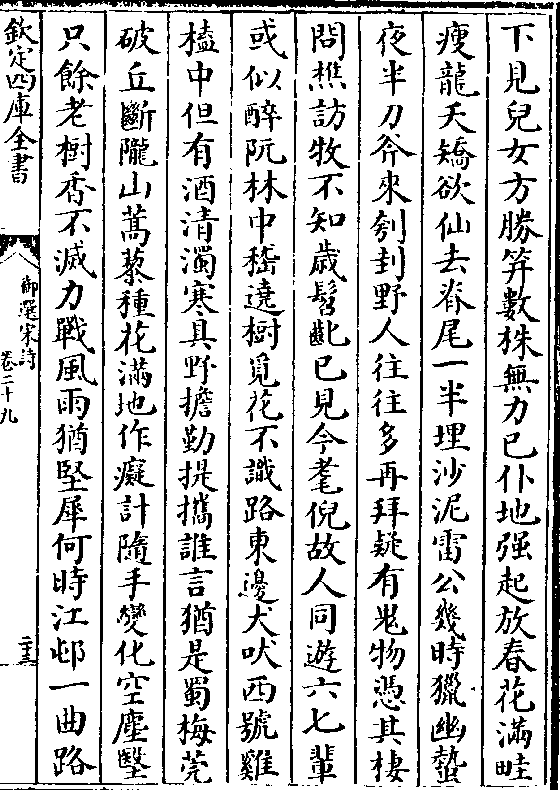 下見兒女方勝筭數株無力已仆地强起放春花滿畦
瘦龍夭矯欲仙去脊尾一半埋沙泥雷公幾時獵幽蟄
夜半刀斧來刳刲野人往往多再拜疑有鬼物憑其棲
問樵訪牧不知歳髫齔已見今耄倪故人同遊六七輩
或似醉阮林中嵇遶樹覓花不識路東邊犬吠西號雞
榼中但有酒清濁寒具野擔勤提攜誰言猶是蜀梅莞
破丘斷隴山蒿藜種花滿地作癡計隨手變化空塵翳
只餘老樹香不滅力戰風雨猶堅犀何時江邨一曲路
欽定四庫全書
御選宋詩
卷二十九
二十三